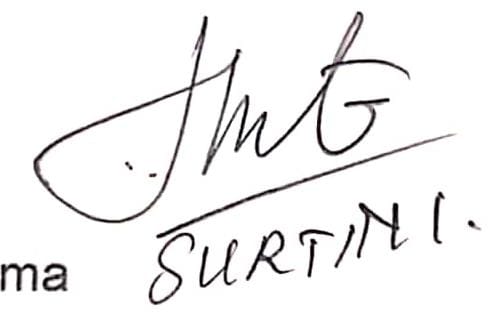 ma SURTINI.